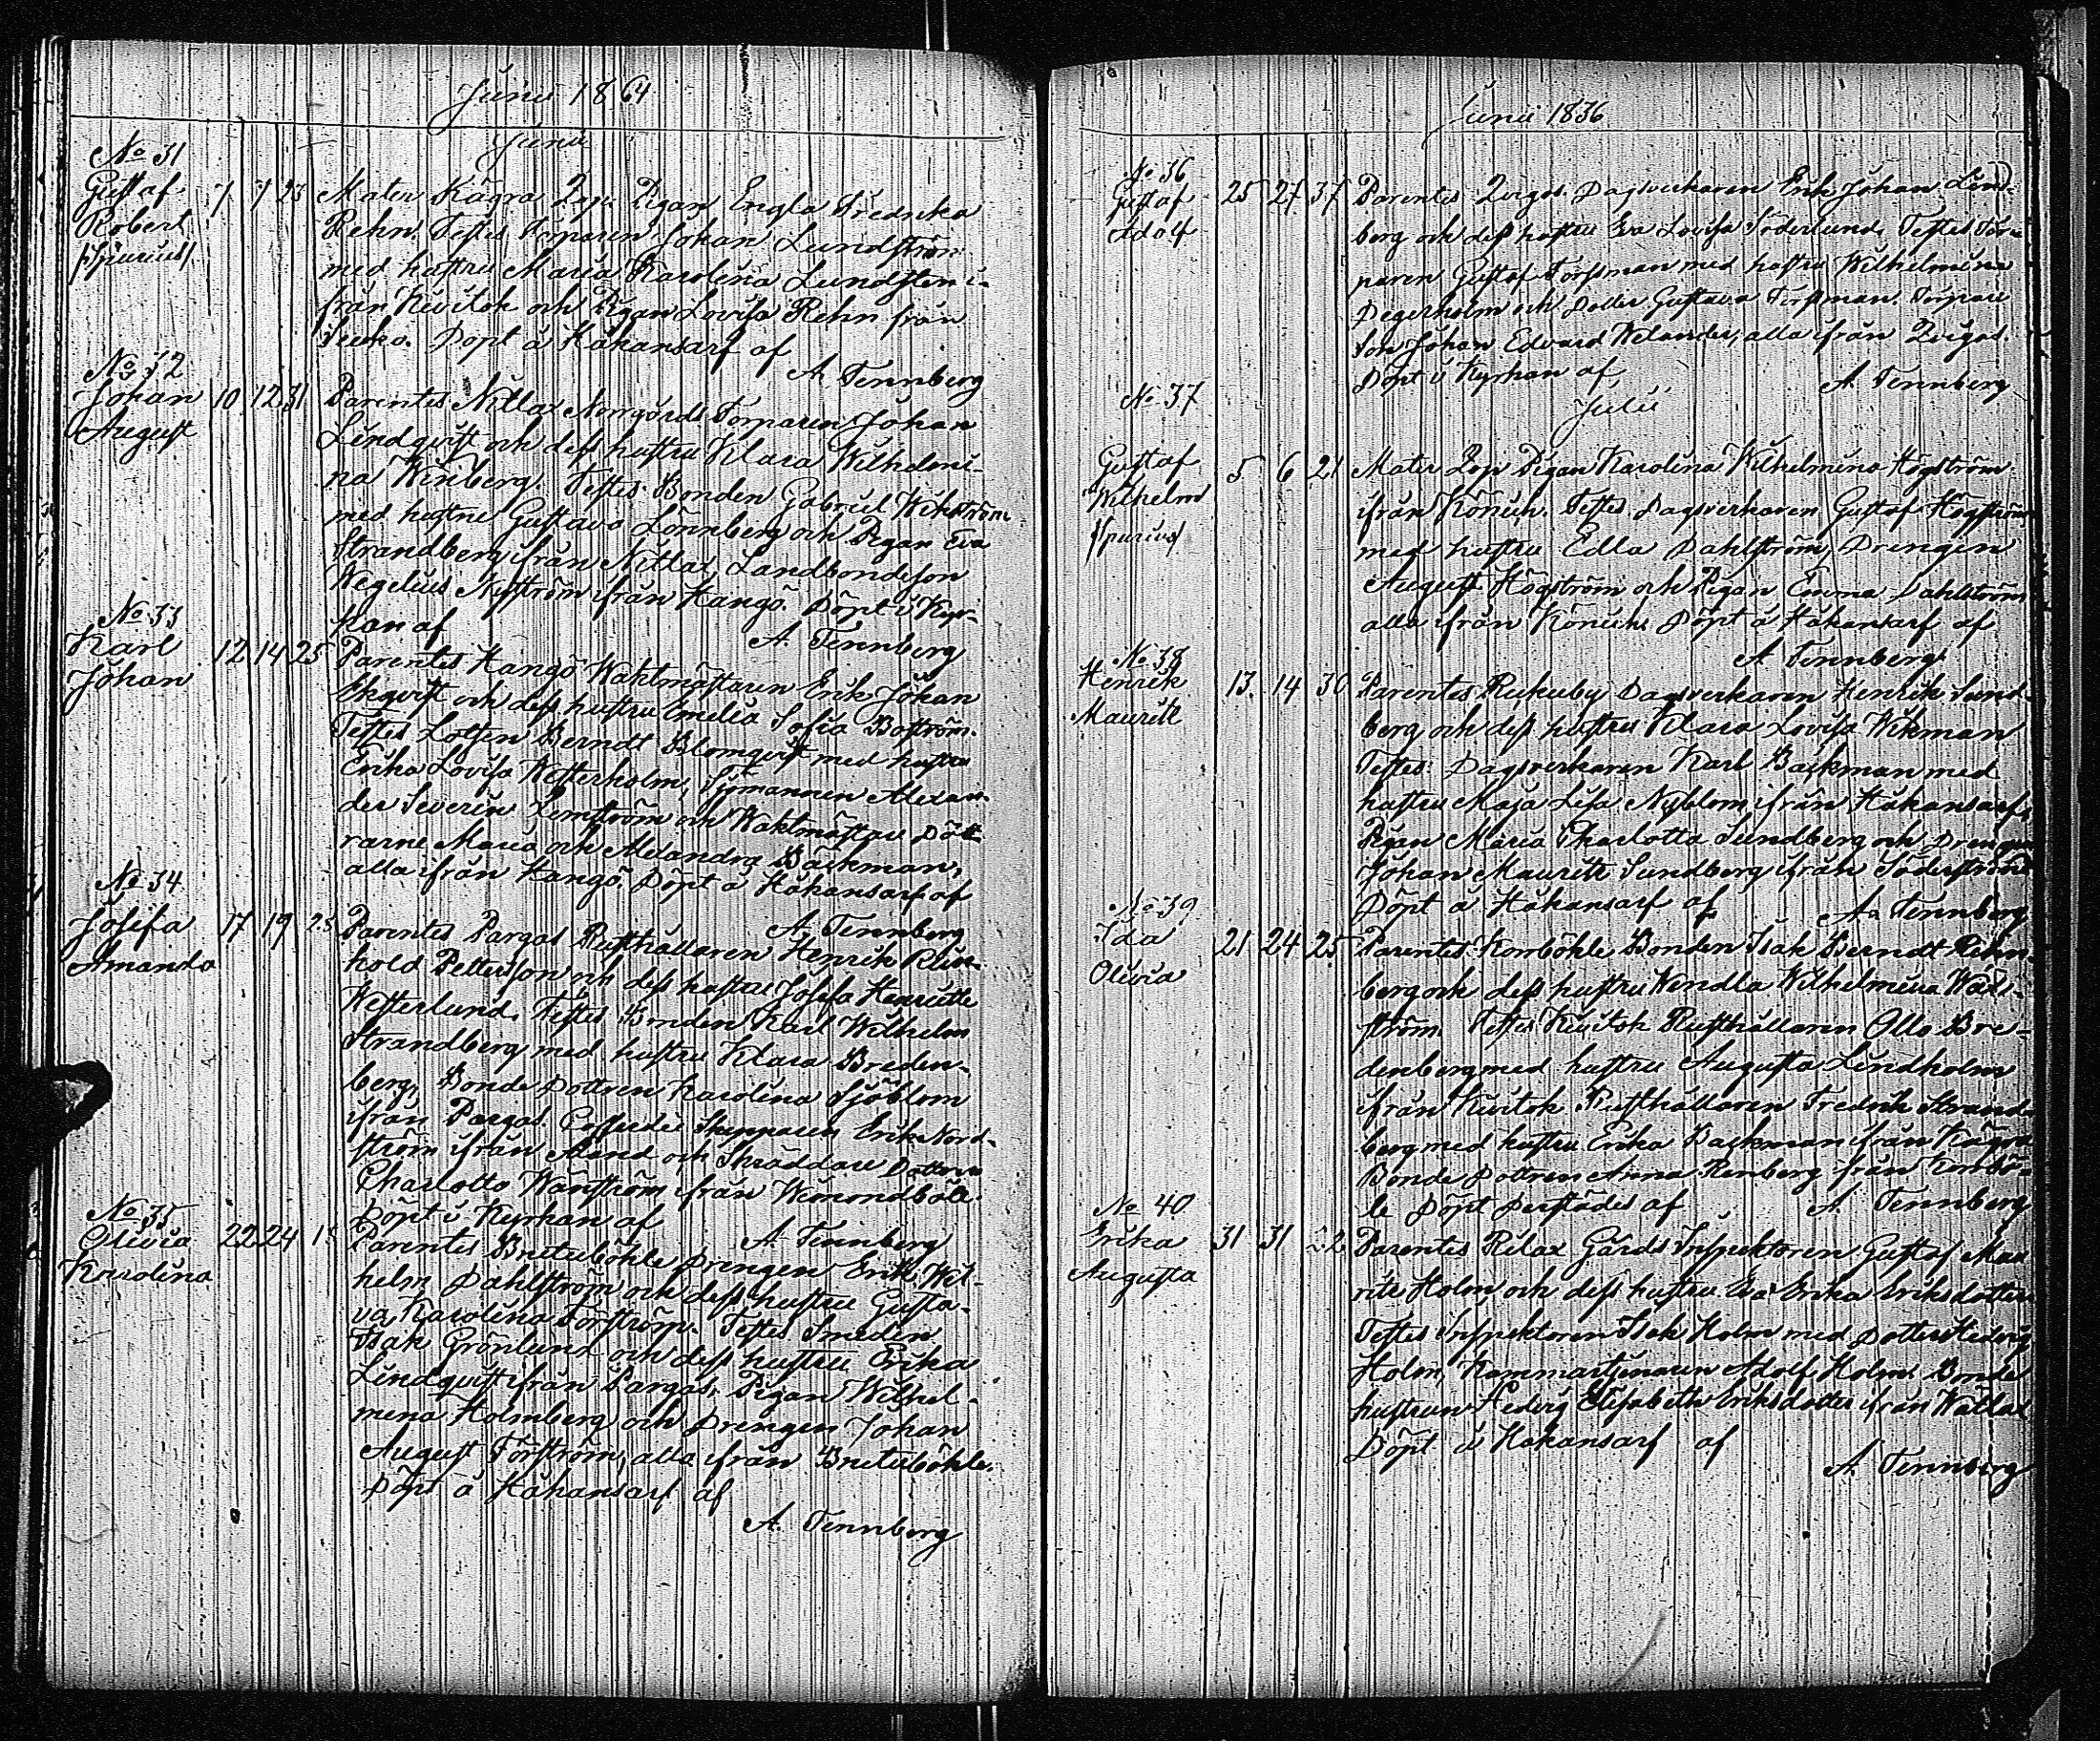 Junii 1864
Junii
No 31
Gustaf
Robert
/spurius/
7 7 23
Mater Kägra Pigan Engla Fredrika
Rehn. Testes Torparen Johan Lundström
med hustru Maria Karolina Lundsten i-
från Kivitok och Pigan Lovisa Rehn från
Döpt å Håkansarf af
A. Tennberg
No 32
Johan
August
10 12 31
Parentes Nitlax Norrgårds Torparen Johan
Lindqvist och dess hustru Klara Wilhelmi-
na Winberg. Testes Bonden Gabriel Wikström
med hustru Gustava Lönnberg och Pigan Eva
Strandberg ifrån Nitlax, Landbondeson
Wegelius Nyström ifrån Hangö. Döpt i Kyr-
kan af
A. Tennberg
No 33
Karl
Johan
12 14 25
Parentes Hangö Waktmästaren Erik Johan
Ekqvist och dess hustru Emelia Sofia Boström.
Testes Lotsen Berndt Blomqvist med hustru
Erika Lovisa Westerholm, Sjömannen Alexan-
der Severin Lemström och Waktmästare Dött-
rarne Maria och Alexandra Bäckman,
alla ifrån Hangö. Döpt å Håkansarf af
A. Tennberg
No 34
Josefa
Amanda
17 19 23
Parentes Pargas Rusthållaren Henrik Rein-
hold Pettersson och dess hustru Josefa Henriette
Westerlund. Testes Bonden Karl Wilhelm
Strandberg med hustru Klara Breden-
berg, Bonde Dottren Karolina Sjöblom
ifrån Pargas. Skepparen Erik Nord-
ström ifrån Åland och Skräddare Dottren
Charlotta Wänström ifrån Wimondböle.
Döpt i Kyrkan af
A. Tennberg
No 35
Olivia
Karolina
22 24
Parentes Breitubōhle Drengen Erik Wil-
helm Dahlström och dess hustru Gusta-
va Karolina Förström. Testes Smeden
Isak Grönlund och dess hustru Erika
Lindqvist ifrån Pargas, Pigan Wilhel-
mina Holmberg och Drengen Johan
August Förström, alla ifrån Breitubōhle.
Döpt å Håkansarf af
A. Tennberg
Junii 1836
No 36
Gustaf
Adolf
25 27 37
Parentes Dagsverkaren Erik Johan Lind-
berg och dess hustru Eva Lovisa Söderlund. Testes Tor-
paren Gustaf Forssman med hustru Wilhelmina
Degerholm och Dotter Gustava Forssman. Torpare
Son Johan Edvard Welander, alla ifrån
Döpt i Kyrkan af
A. Tennberg
Julii
No 37
Gustaf
Wilhelm
/spurius/
5 6 21
Mater Pigan Karolina Wilhelmina Högström
ifrån Könuik. Testes Dagsverkaren Gustaf Högström
med hustru Edla Dahlström, Drengen
August Högström och Pigan Emma Dahlström
alla ifrån Könuik. Döpt å Håkansarf af
A. Tennberg
No 38
Henrik
Mauritz
13 14 30
Parentes Rukuby Dagsverkaren Henrik Sund-
berg och dess hustru Klara Lovisa Wikman
Testes: Dagsverkaren Karl Bäckman med
hustru Maja Lisa Nyblom ifrån Håkansarf,
Pigan Maria Charlotta Sundberg och Drengen
Johan Mauritz Sundberg ifrån Söderstrand
Döpt å Håkansarf af
A. Tennberg
No 39
Ida
Olivia
21 24 25
Parentes Kornböhle Bonden Isak Berndt Rehn-
berg och dess hustru Wendla Wilhelmina Wad-
ström. Testes Kivitok Rusthållaren Otto Bre-
denberg med hustru Augusta Lindholm
ifrån Kivitok Rusthållaren Fredrik Strand-
berg med hustru Erika Backman ifrån Kägra
Bonde Dottren Anna Renberg från Kornbö-
le Döpt derstädes af
A. Tennberg
No 40
Erika
Augusta
31 31 22
Parentes Rilax Gårds Inspektoren Gustaf Mau-
ritz Holm och dess hustru Eva Erika Eriksdotter
Testes Inspektoren Isak Holm med Dotter Hedvig
Holm, Kammartjenaren Adolf Holm. Bonde
hustrun Hedvig Elisabeth Eriksdotter ifrån Wättlax
Döpt å Håkansarf af
A. Tennberg